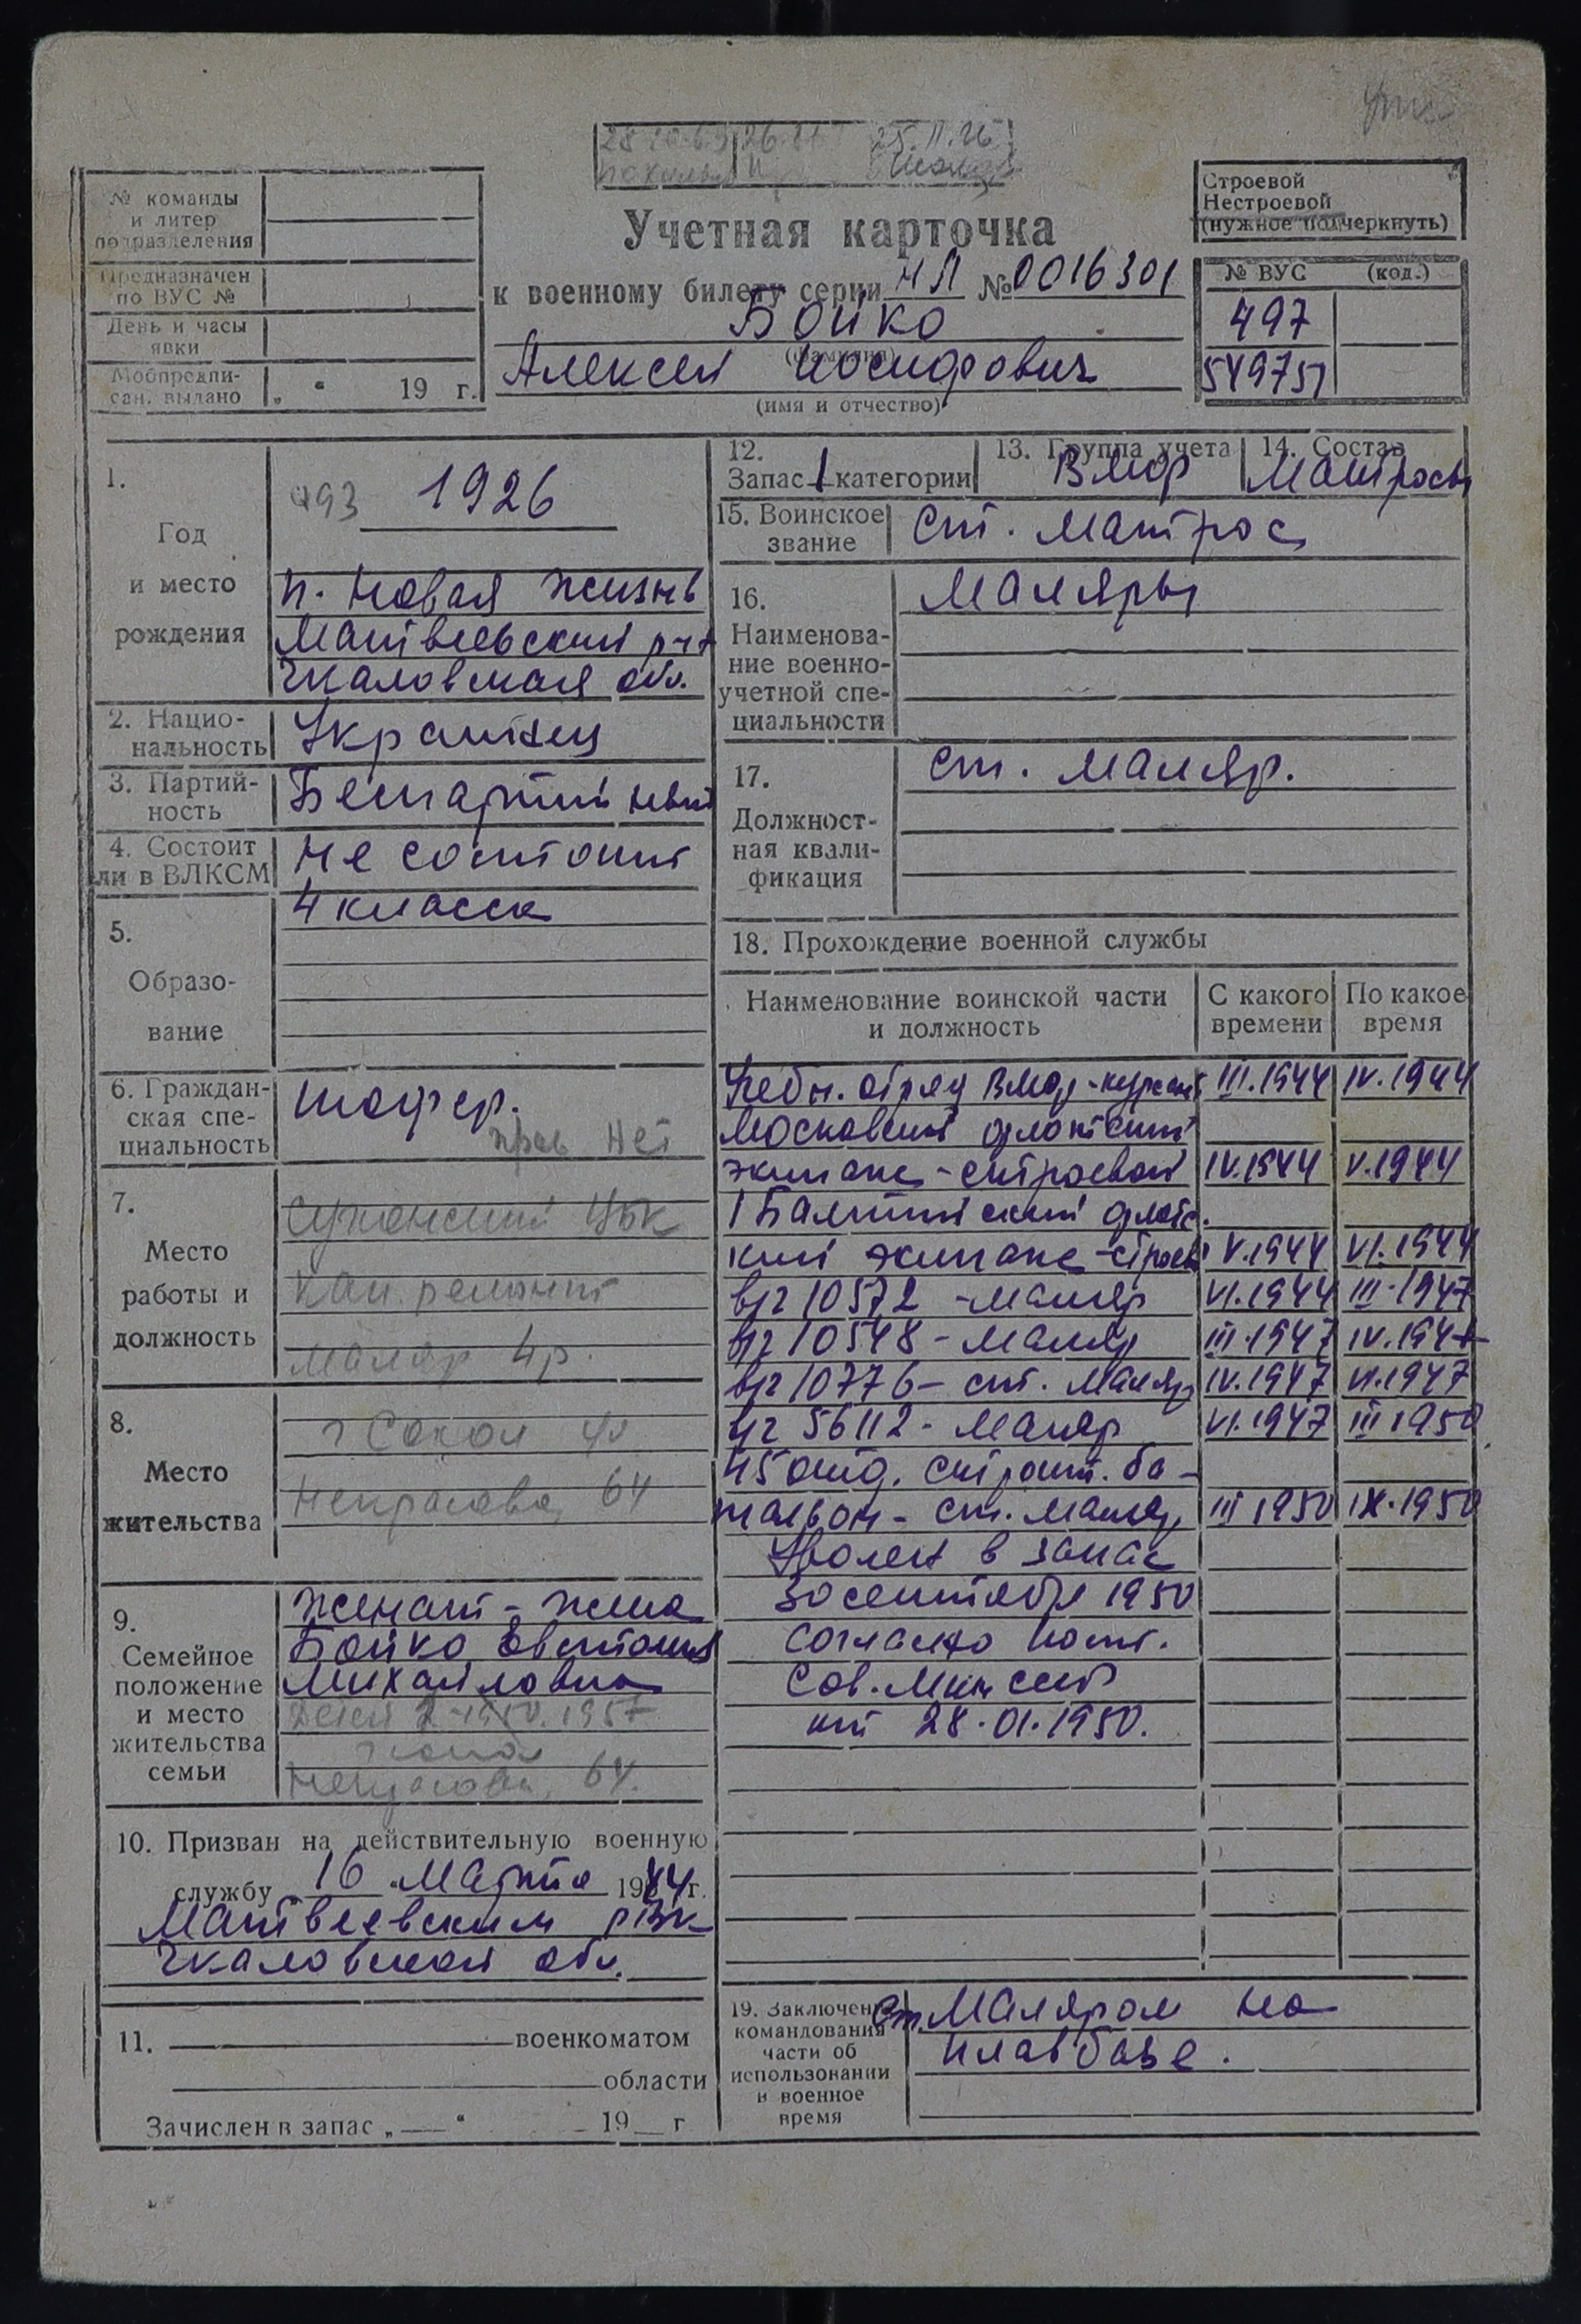 № команды
и литер
подразделения
Предназначен
по ВУС №
День и часы
явки
Мобпредпи-
сан. выдано „ “ 19 г.
Учетная карточка
к военному билету серии НЛ № 0016301
Бойко
(фамилия)
Алексей Иосифович
(имя и отчество)
Строевой
Нестроевой
(нужное подчеркнуть)
№ ВУС (код.)
497
549751
1.
Год
и место
рождения
493 1926
п. Новая жизнь
Матвеевский р-н
Чкаловская обл.
2. Нацио-
нальность
Украинец
3. Партий-
ность
Беспартийный
4. Состоит
ли в ВЛКСМ
Не состоит
5.
Образо-
вание
4 класса
6. Граждан-
ская спе-
циальность
шофер.
прав нет
7.
Место
работы и
должность
Сухонский ЦБК
кап. ремонт
маляр 4 р.
8.
Место
жительства
г Сокол ул
Некрасова, 64
9.
Семейное
положение
и место
жительства
семьи
Женат - жена
Бойко
Михайловна
Детей 2 - 1950. 1957
Некрасова, 64.
10. Призван на действительную военную
службу „16 “ Марта 1944 г.
Матвеевским РВК
Чкаловской обл.
11. военкоматом
области
Зачислен в запас „ “ 19 г
12.
Запас 1 категории
13. Группа учета
ВМФ
14. Состав
Матросы
15. Воинское
звание
Ст. матрос
16.
Наименова-
ние военно-
учетной спе-
циальности
Маляры
17.
Должност-
ная квали-
фикация
Ст. маляр.
18. Прохождение военной службы
Наименование воинской части
и должность
С какого
времени
По какое
время
Учебн. отряд ВМФ - курсант III.1944 IV.1944
Московский флотский
экипаж - строевой IV.1944 V.1944
1 Балтийский флотс.
кий экипаж - строев V.1944 VI.1944
в/г 10572 - маляр VI.1944 III.1947
в/г 10548 - маляр III.1947 IV.1947
в/г 10776 - ст. маляр IV.1947 VI.1947
56112 - маляр VI.1947 III 1950
45 отд. строит. ба-
тальон - ст. маляр III 1950 IX.1950
Уволен в запас
30 сентября 1950
согласно пост.
Сов. Мин СССР
от 28.01.1950.
19. Заключен
командования
части об
использовании
в военное
время
Ст. Маляром на
плавбазе.